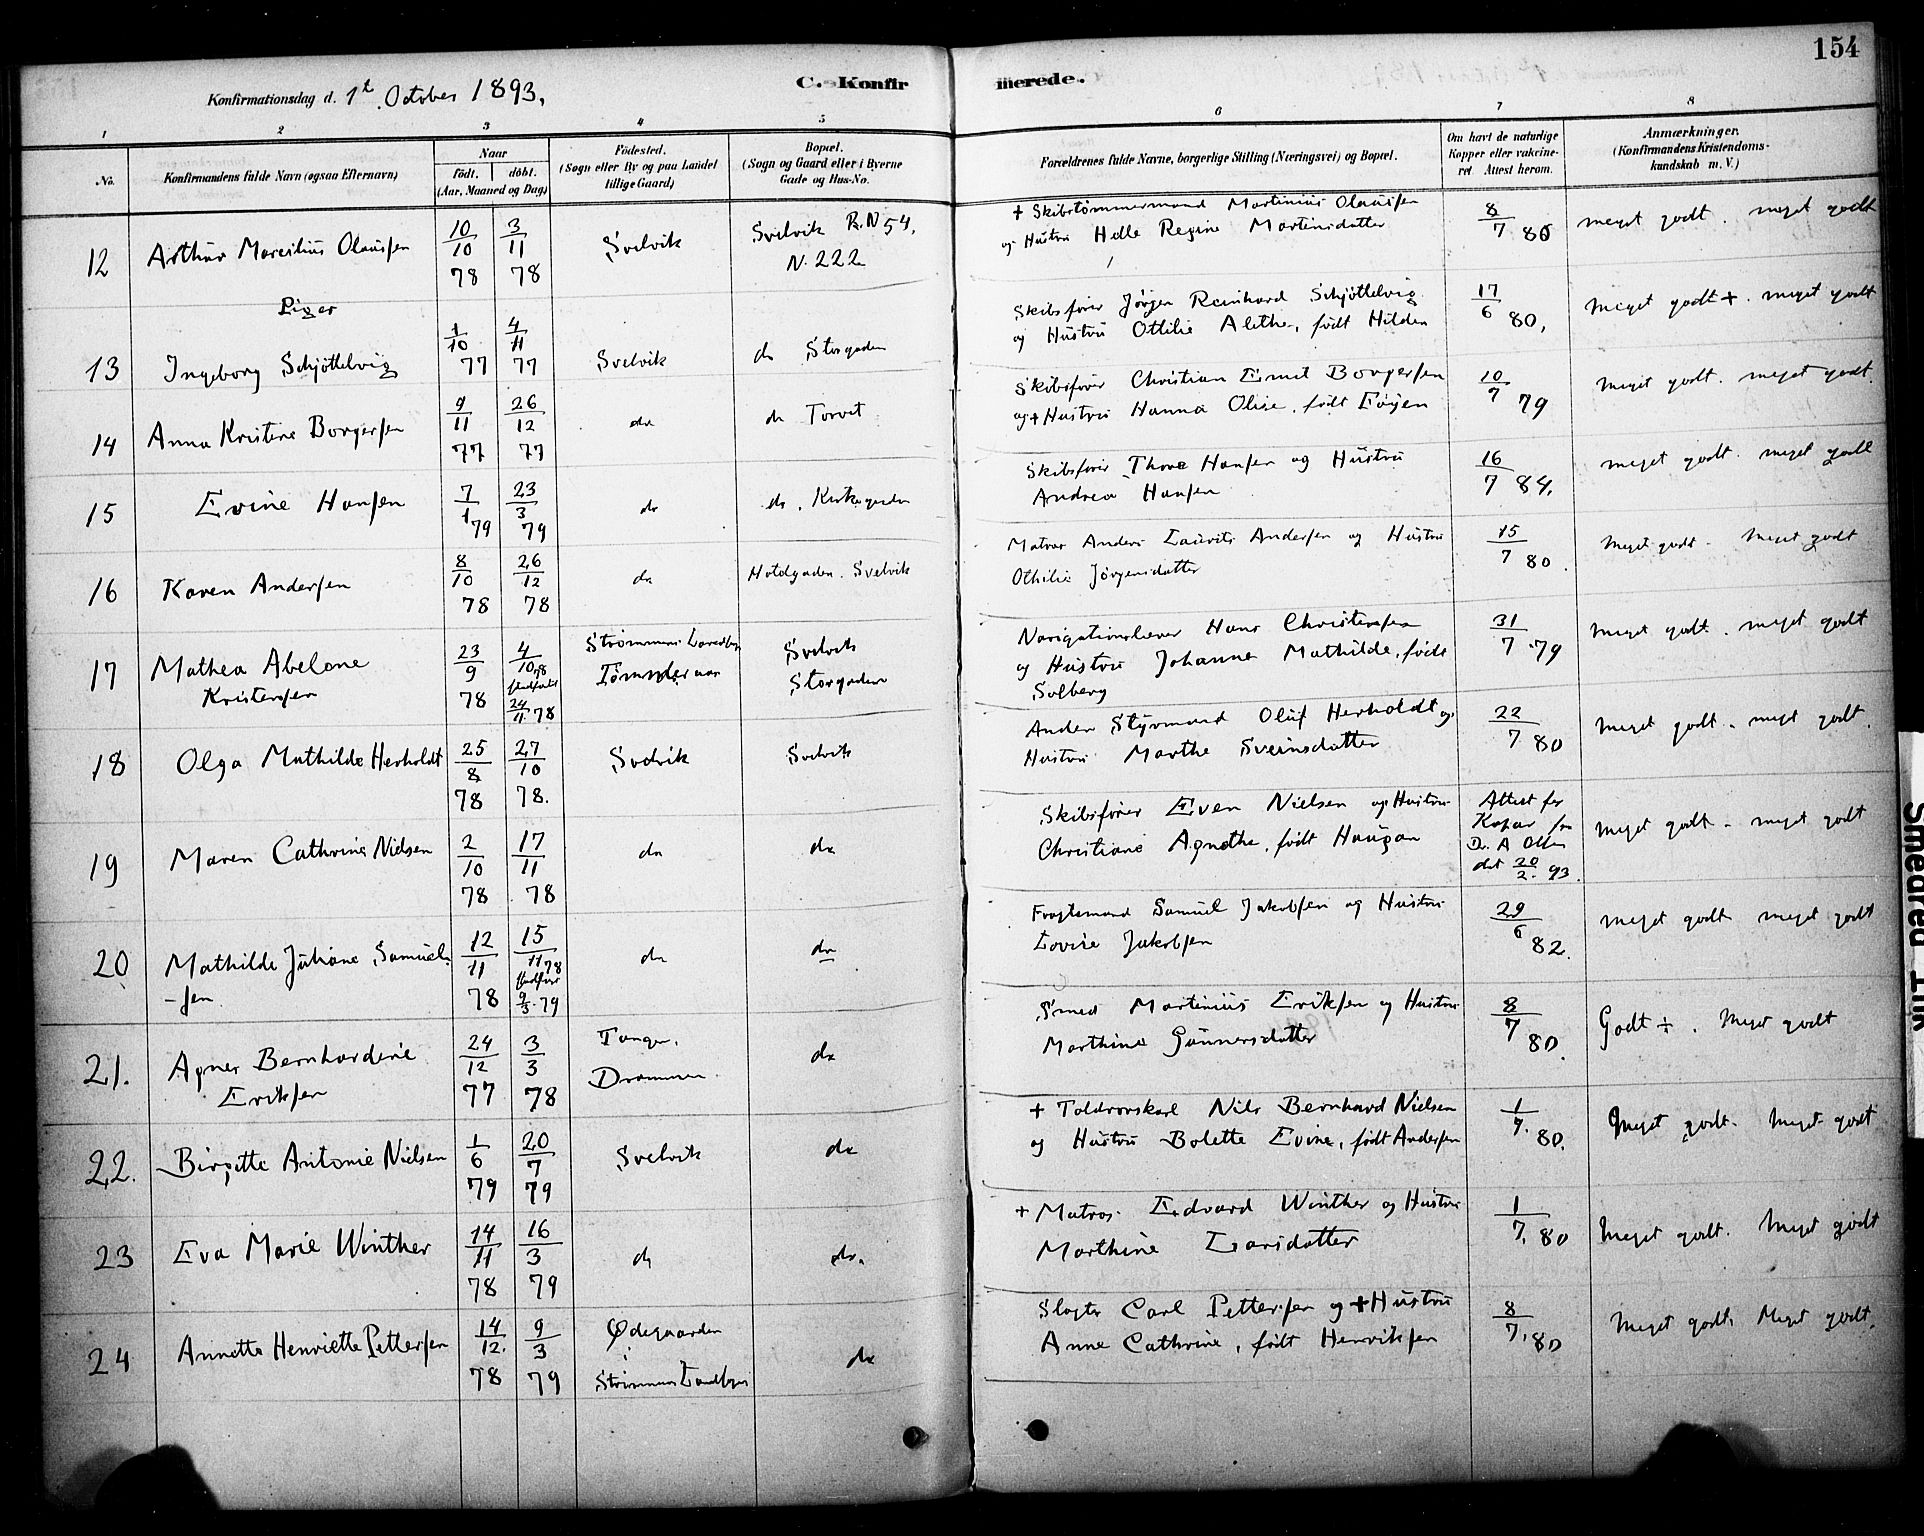 154
Konfirmationsdag d. 1t October 1893.
C. Konfirmerede.
1 2 3 4 5 6 7 8
No.
Konfirmandens fulde Navn (ogsaa Efternavn)
Naar
födt. döbt.
(Aar, Maaned og Dag)
Födested.
(Sogn eller By og paa Landet
tillige Gaard)
Bopæl.
(Sogn og Gaard eller i Byerne
Gade og Hus-No.
Forældrenes fulde Navne, borgerlige Stilling (Næringsvei) og Bopæl.
Om havt de naturlige
Kopper eller vakcine-
ret Attest herom.
Anmærkninger.
(Konfirmandens Kristendoms-
kundskab m. V.)
12 Arthur Marcilius Olaussen 10/10 78 3/11 78 Svelvik Svelvik R.N 54,
N. 222
+ Skibstømmermand Martinius Olaussen
og Hustru Helle Regine Martinsdatter 8/7 86 meget godt. meget godt
Piger
13 Ingeborg Schjöttelvig 1/10 77 4/11 77 Svelvik do Storgaden
Skibsfører Jörgen Reinhard Schjöttelvig
og Hustru Ottilie Alethe, født Hilden 17/6 80, meget godt+. meget godt
14 Anna Kristine Borgersen 9/11 77 26/12 77 do do Torvet
Skibsfører Christian Emil Borgersen
og + Hustru Hanna Olise, født Eøyen 10/7 79 Meget godt. meget godt.
15 Evine Hansen 7/1 79 23/3 79 do do. Kirkegaden
Skibsfører Thore Hansen og Hustru
Andrea Hansen 16/7 84. meget godt. meget godt
16 Karen Andersen 8/10 78 26/12 78 do Svelvik
Matros Anders Laurits Andersen og Hustru
Othilie Jørgensdatter 15/7 80. Meget godt. Meget godt
17 Mathea Abelone
Kristensen 23/9 78 4/10 78
24/11 78 Strømmens Svelvik
Storgaden
Hans Christensen
og Hustru Johanne Mathilde, født
Solberg 31/7 79 Meget godt. meget godt
18 Olga Mathilde Herholdt 25/8 78 27/10 78. Svelvik Svelvik
Anden Styrmand Oluf Herholdt og
Hustru Marthe Sveinsdatter 22/7 80 Meget godt. meget godt.
19 Maren Cathrine Nielsen 2/10 78 17/11 78 do do
Skibsfører Even Nielsen og Hustru
Christiane Agnethe, født Haugan Attest for
Kopar fra
Dr. A
dat 20/2. 93. Meget godt. meget godt
20 Mathilde Juliane Samuel-
-sen 12/11 78 15/11 78
9/3 79 do do
Fragtemand Samuel Jakobsen og Hustru
Lovise Jakobsen 29/6 82. Meget godt meget godt
21. Agnes Bernhardine
Eriksen 24/12 77 3/3 78 Tangen,
Drammen. do
Smed Martinius Eriksen og Hustru
Marthine Gunnersdatter 8/7 80. Godt ÷. Meget godt
22. Birgitte Antonie Nielsen 1/6 79 20/7 79 Svelvik do
+ Toldrorskarl Nils Bernhard Nielsen
og Hustru Bolette Evine, født Andersen 1/7. 80. Meget godt. Meget godt
23 Eva Marie Winther 14/11 78 16/3 79 do do.
+ Matros Edvard Winther og Hustru
Marthine Larsdatter 1/7. 80 Meget godt. Meget godt
24 Annette Henriette Pettersen 14/12. 78 9/3 79 Ødegaarden
Strömmens do
Slagter Carl Pettersen og + Hustru
Anne Cathrine, født Henriksen 8/7. 80 Meget godt. Meget godt.
Smedred Ink